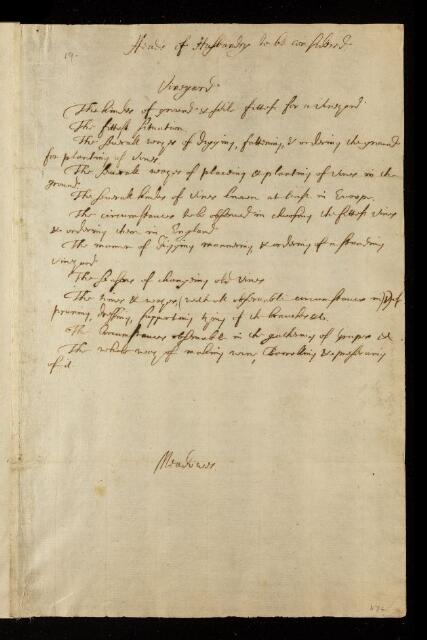 19.
Heads of Husbandry to be considered
Vineyard.
The kindes of ground & soile fittest for a vineyard.
The fittest situation
The severall wayes of digging, fattening, & ordering the ground
for planting of vines.
The severall wayes of placeing & planting of vines in the
ground.
The severall kindes of vines knowne at least in Europe.
The circumstances to be observed in choosing the fittest vines
& ordering them in England
The manner of digging manureing & ordering of a standing
vineyard
The seasons of changing old vines
The times & wayes with all observable circumstances in
pruning, dressing, supporting tying of the branches &c.
The Circumstances observable in the gathering of grapes &c.
The whole way of making wine, & preserving
of it.
Meadowes.